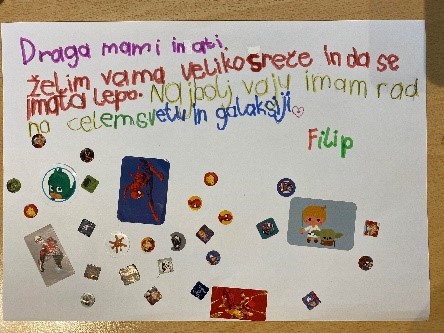 Draga mami in ati.
želim vama veliko sreče in da se
imata lepo. Najbolj vaju imam rad
na celem svetu in galaksiji
Filip